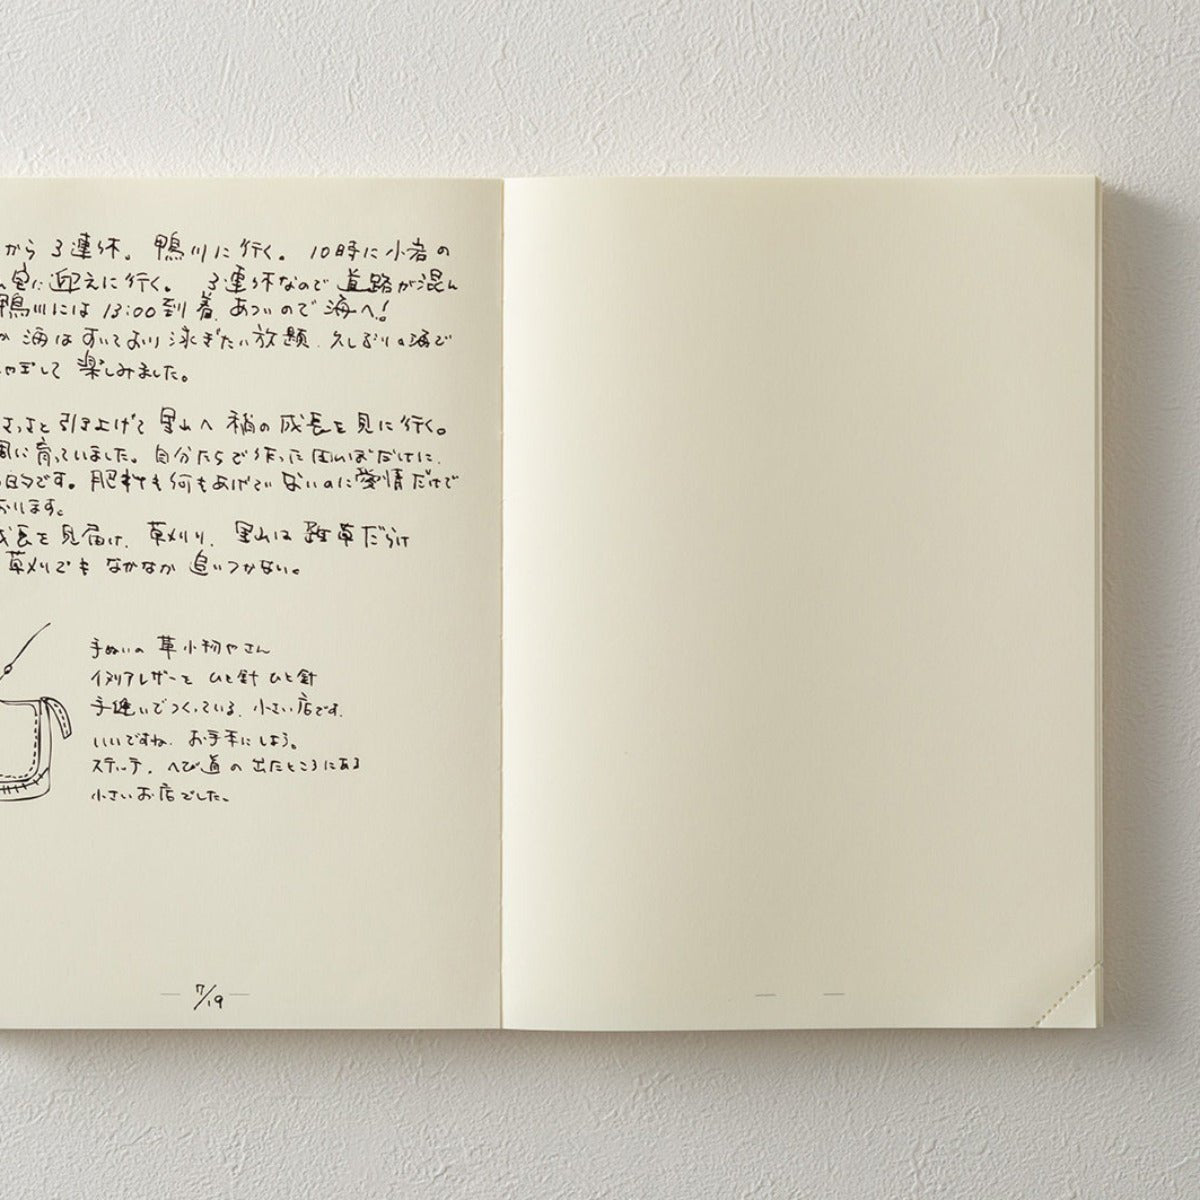 から 3連休。 鴨川に行く。 10時に小岩の
に迎えに行く。 3連休なので道路が混ん
鴨川には 13:00到着、あついので海へ!
海はすいており泳ぎたい放題、久しぶりの海で
して楽しみました。
さっさと引き上げて里山へ 稲の成長を見に行く。
に育っていました。自分たちで作った田んぼだけに、
です。肥料も何もあげていないのに愛情だけで
おります。
成長を見届け、草刈り、里山は雑草だらけ
草刈りでもなかなか追いつかない。
手ぬいの 革小物やさん
イタリアレザーを ひと針 ひと針
手縫いでつくっている、小さい店です。
いいですね、お手本にしよう。
ステッチ、へび道の出たところにある
小さいお店でした。
7/19